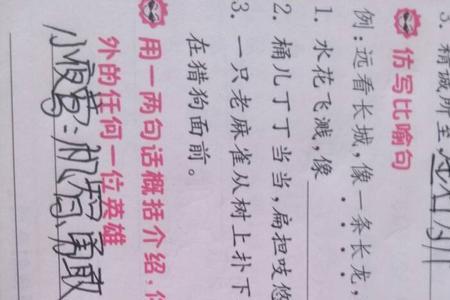 3. 精诚所至,
仿写比喻句
例:远看长城,像一条长龙,
1. 水花飞溅,像
2. 桶儿丁丁当当,扁担吱悠
3. 一只老麻雀从树上扑下
在猎狗面前。
用一两句话概括介绍,
外的任何一位英雄
小夜莺:机智、勇敢